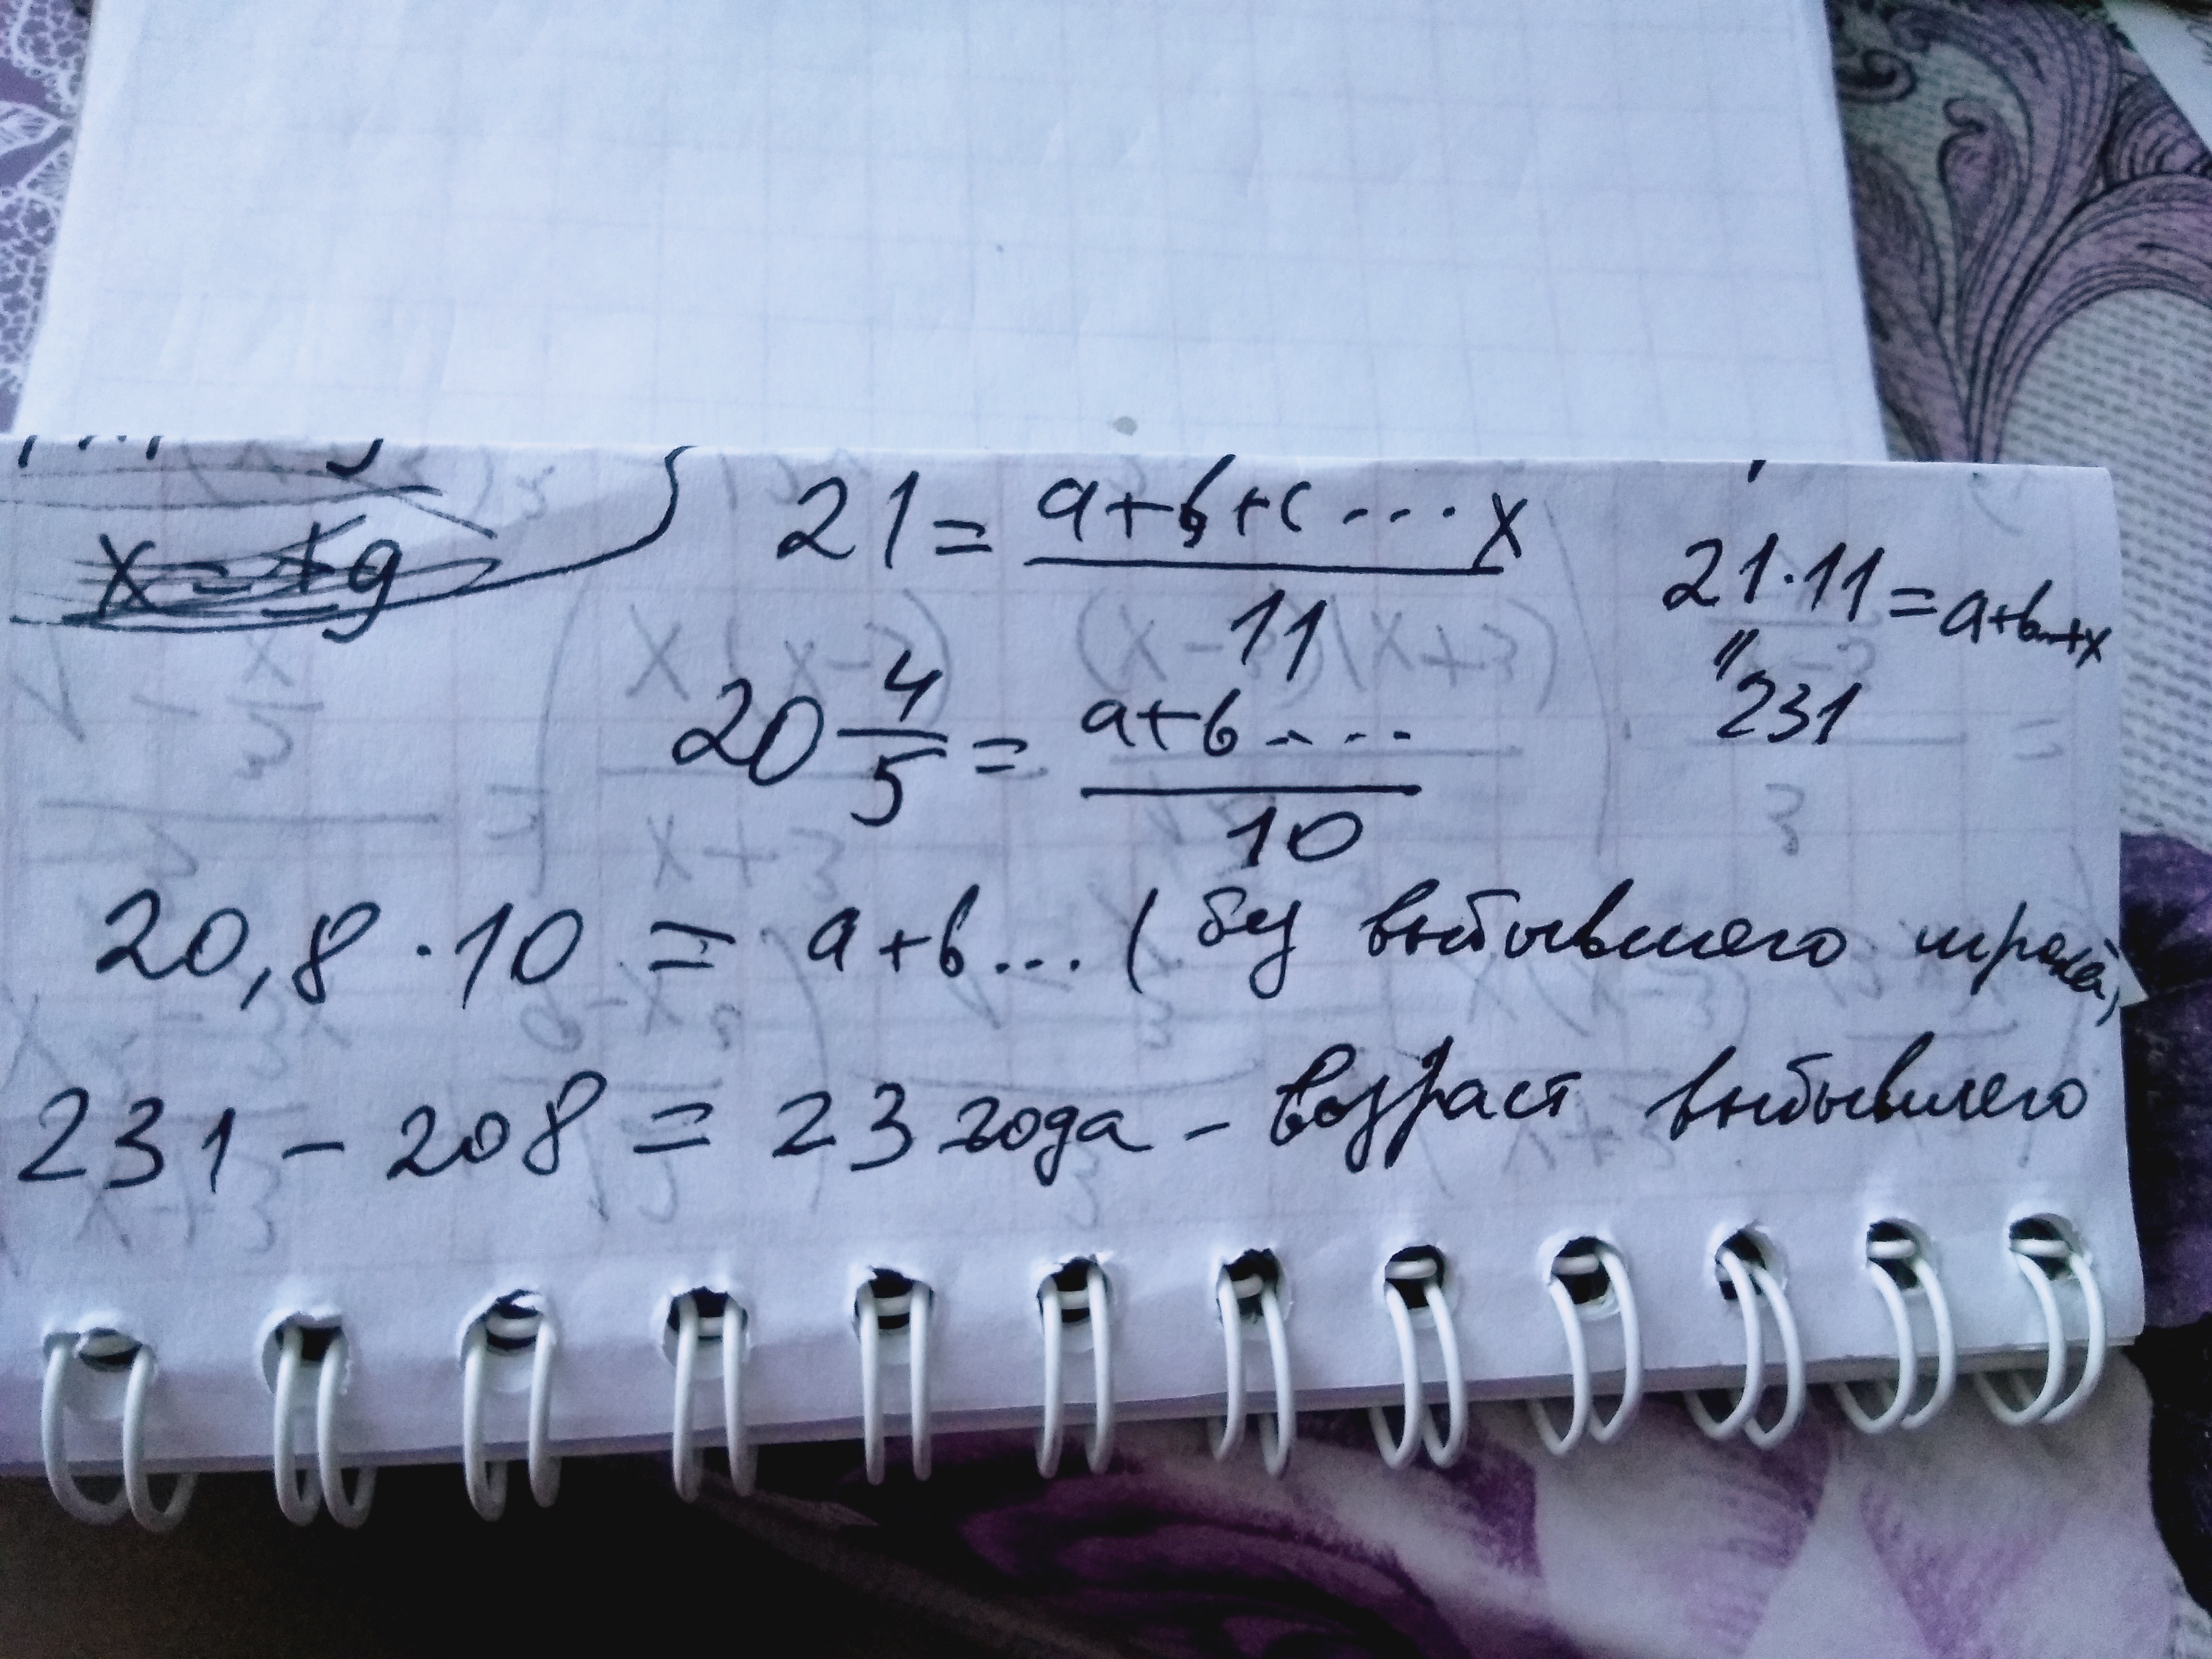 x = ±9
21 = (a+b+c...x)/11
21·11 = a+b...+x
231
20 4/5 = (a+b....)/10
20,8 · 10 = a+b... (без выбывшего игрока)
231 – 208 = 23 года – возраст выбывшего